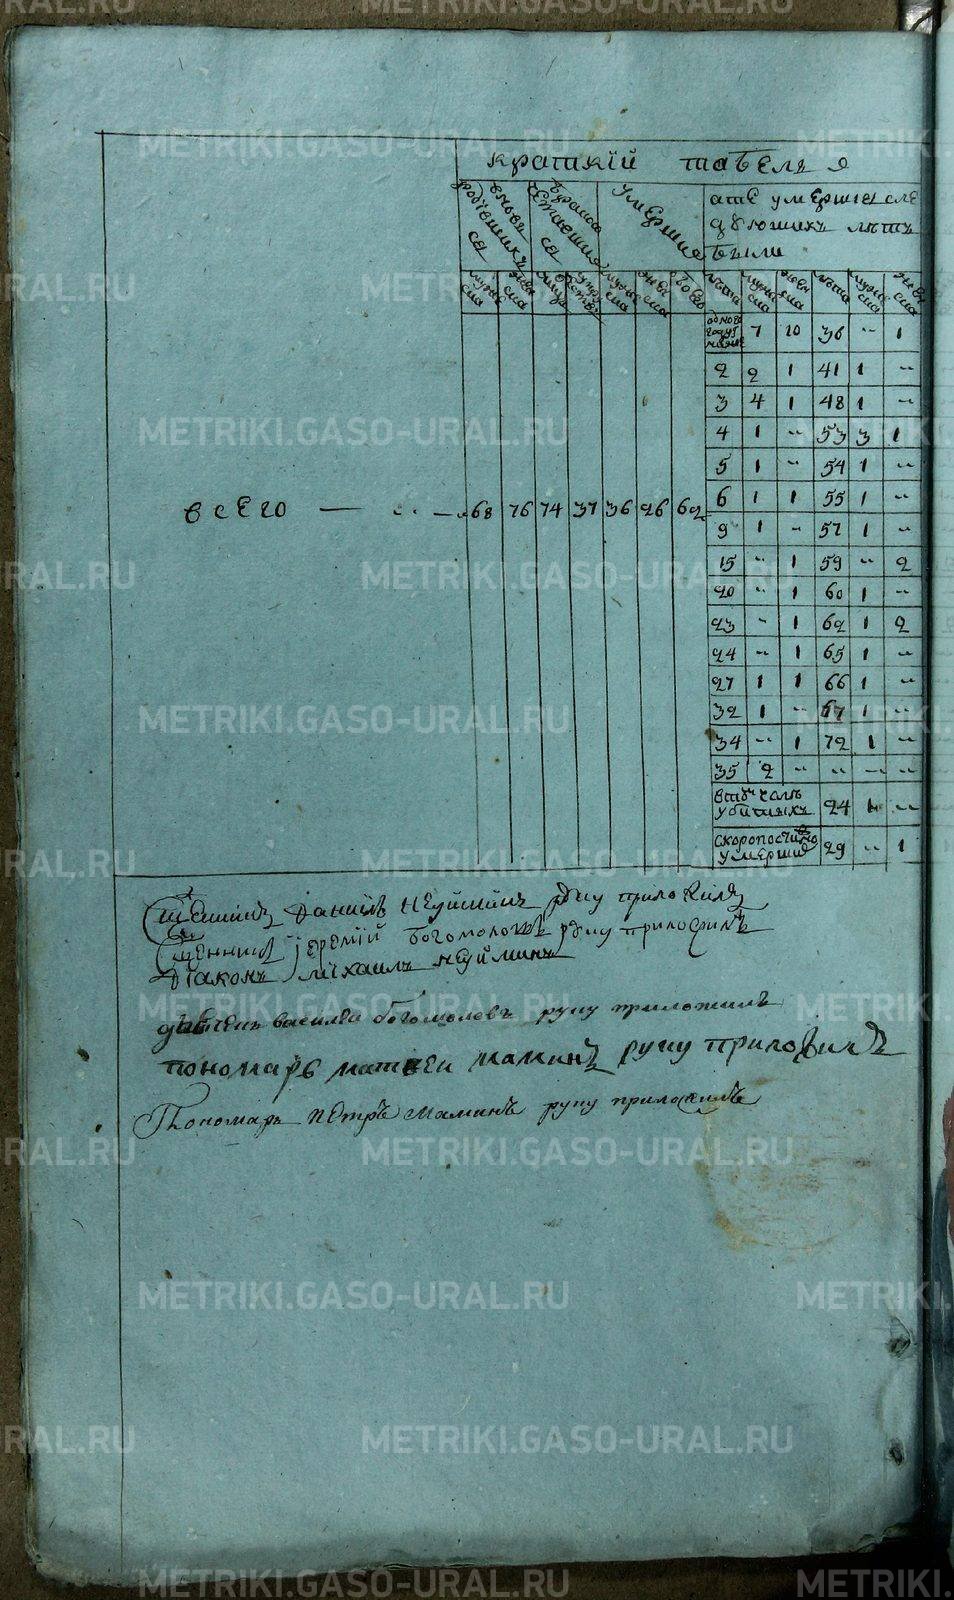 краткій табель
вновь родившихся
бракосочетавшияся
умершие
а те умершия сле
дующихъ летъ
были
мужеска
женска
лица
супружества
мужеска
женска
обоего
лета
мужеска
женска
лета
мужеска
женска
одного году и менше 7 10 36 " 1
2 2 1 41 1 "
3 4 1 48 1 "
4 1 " 53 3 1
5 1 " 54 1 "
6 1 1 55 1 "
всего — — 68 76 74 37 36 26 62
9 1 " 57 1 "
15 " 1 59 " 2
20 " 1 60 1 "
23 " 1 62 1 2
24 " 1 65 1 "
27 1 1 66 1 "
32 1 " 67 1 "
34 " 1 72 1 "
35 2 " " — "
втом числъ убитыхъ 24 1 "
скоропостижно умершие 29 " 1
Сщенникъ Даниилъ Неуйминъ руку приложилъ
Сщенникъ Іеремій Богомоловъ руку приложилъ
Діаконъ Михаилъ Неуйминъ
дьячекъ василеи богомоловъ руку приложилъ
пономарь матвеи маминъ руку приложилъ
Пономарь Петръ Маминъ руку приложилъ
METRIKI.GASO-URAL.RU